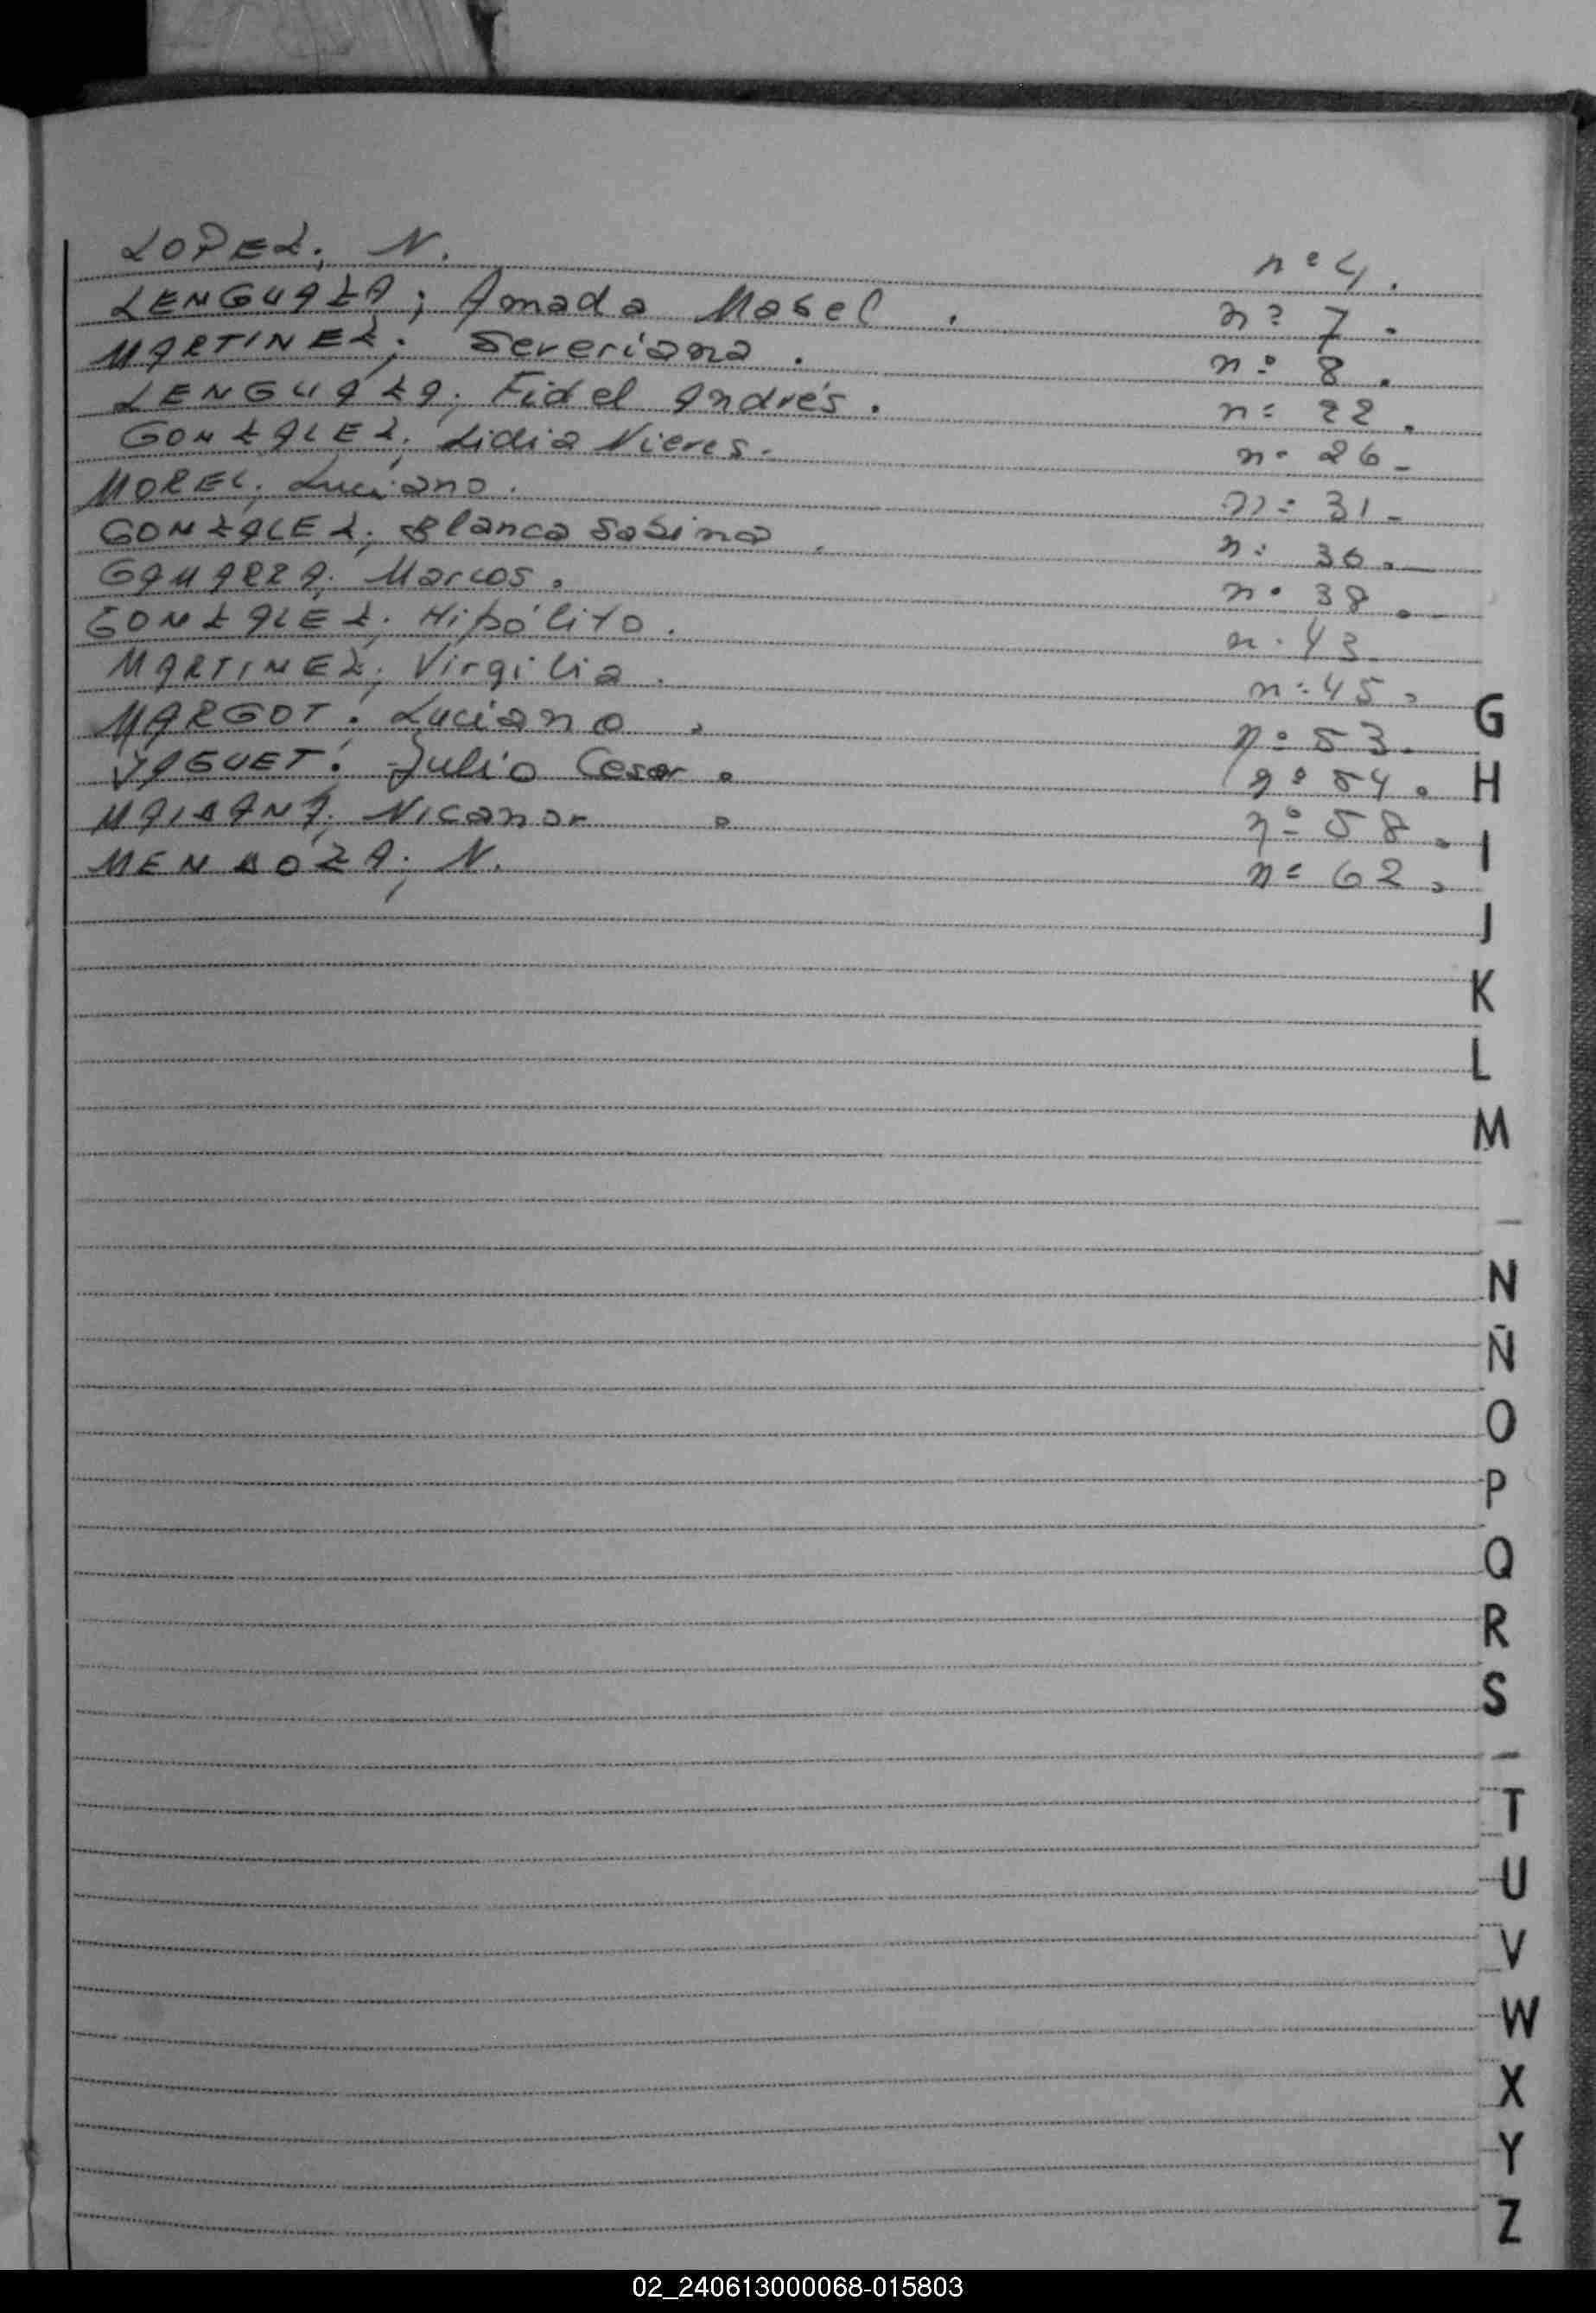 LOPEZ; N. nº 4.
LENGUAZA; Amada Mabel. nº 7.
MARTINEZ; Severiana. nº 8.
LENGUAZA; Fidel Andrés. nº 22.
GONZALEZ; Lidia Nieves. nº 26.
MOREL; Luciano. nº 31.
GONZALEZ; Blanca Sabina. nº 36.
GAMARRA; Marcos. nº 38.
GONZALEZ; Hipólito. nº 43
MARTINEZ; Virgilia. nº 45.
MARGOT; Luciano. nº 53.
Julio Cesar. nº 54.
MAIDANA; Nicanor. nº 58.
MENDOZA; N. nº 62.
G
H
I
J
K
L
M
N
Ñ
O
P
Q
R
S
T
U
V
W
X
Y
Z
02_240613000068-015803